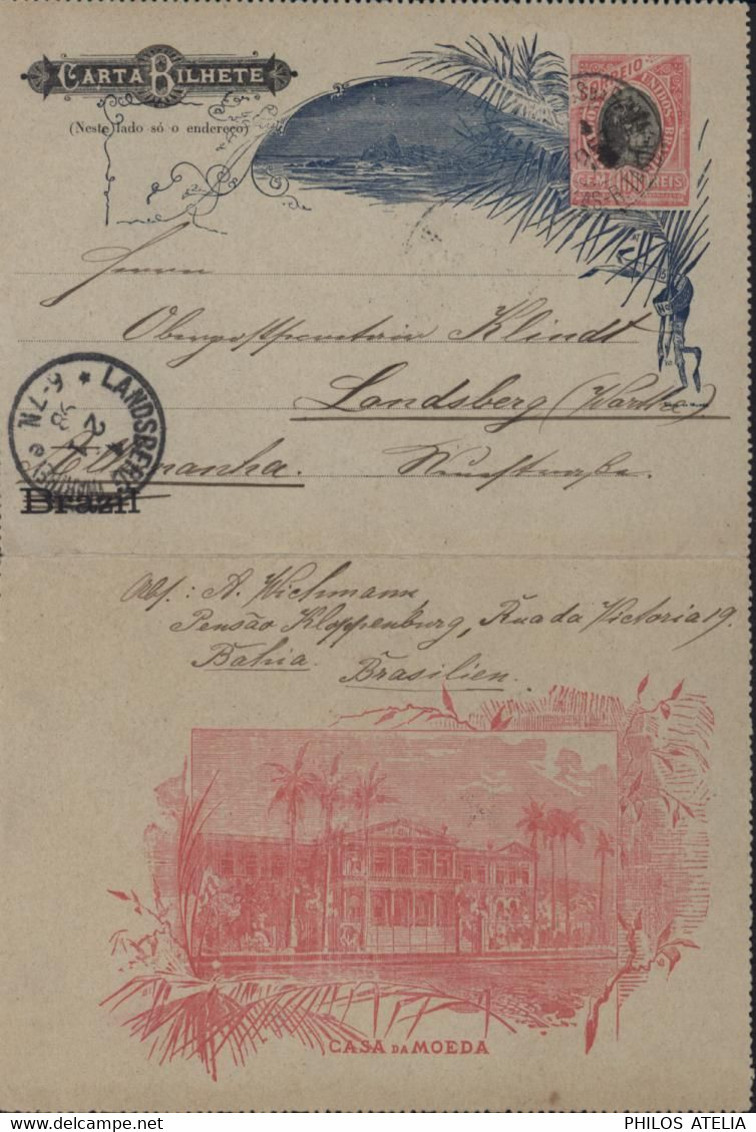 CARTA BILHETE
(Neste lado só o endereço)
CORREIO
CEM REIS
Herrn
Oberpostsecretair Klindt
Landsberg (Warthe)
Allemanha.
LANDSBERG
6-7N
Brazil
Abs.: A. Wichmann
Pensão Kloppenburg, Rua da Victoria 19.
Bahia. Brasilien.
CASA DA MOEDA
PHILOS ATELIA